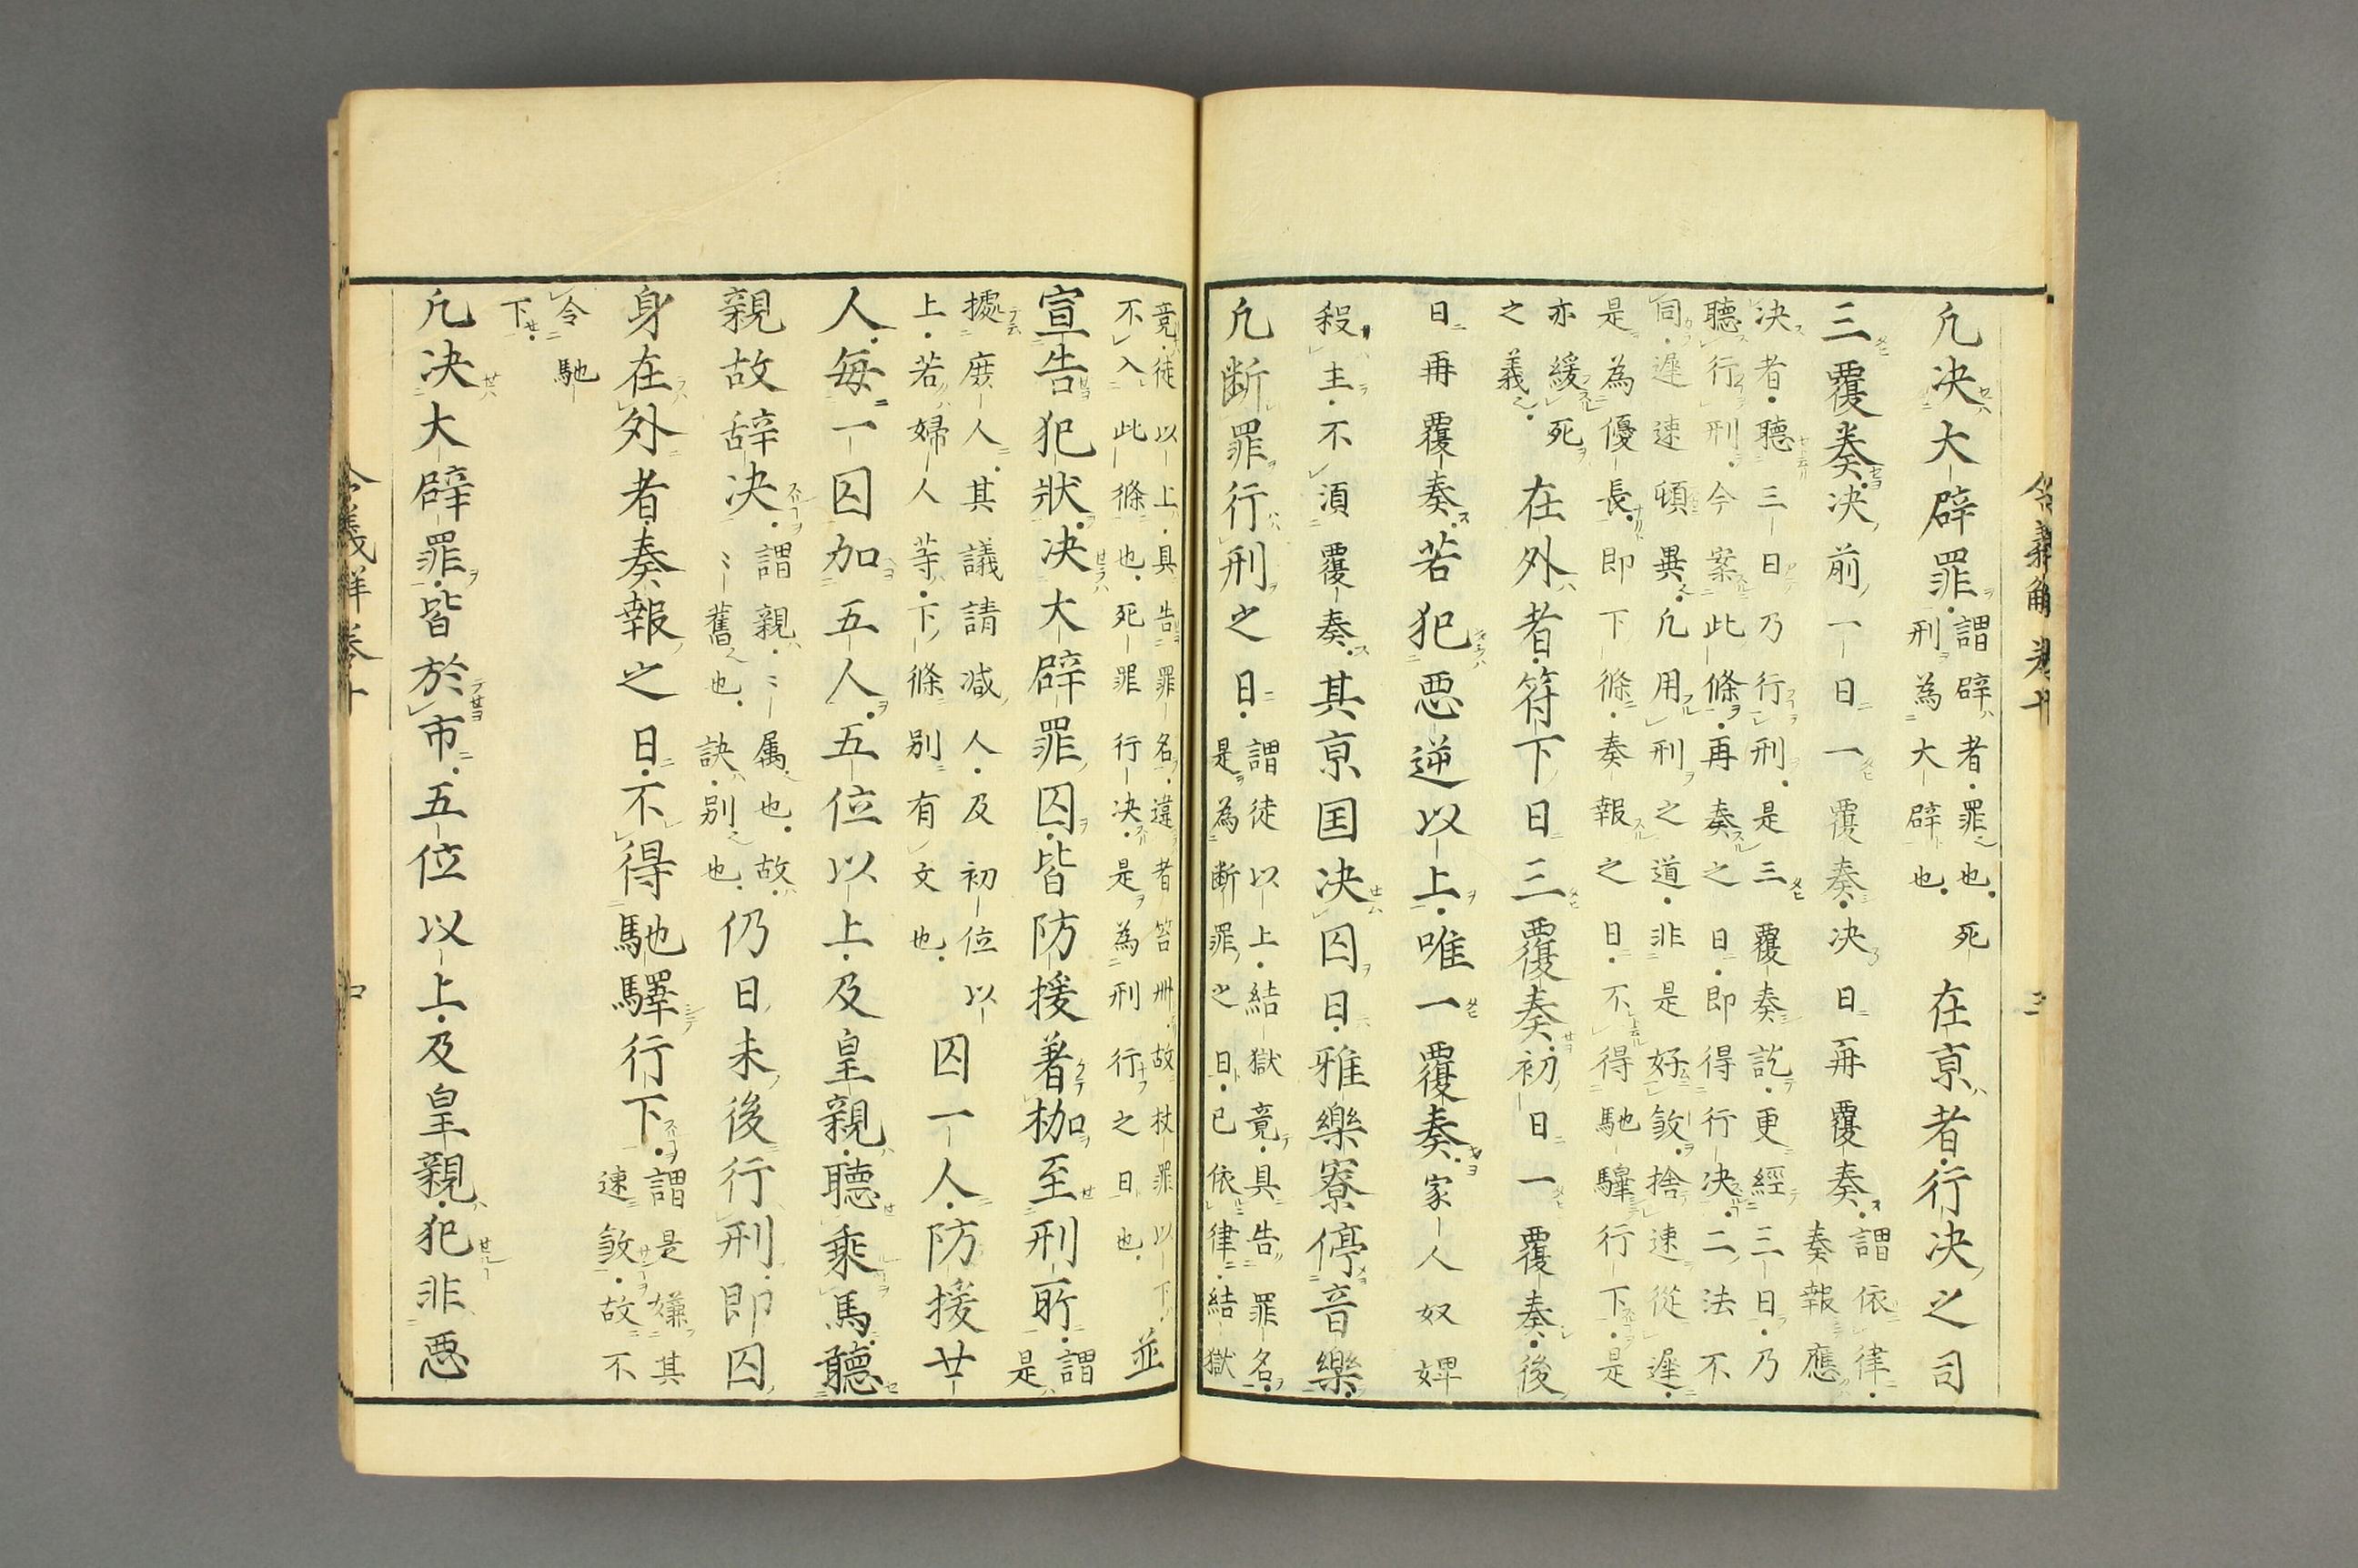 凢决大辟罪謂辟者罪也死
刑為大辟也在京者行决之司
三覆奏决前一日一覆奏决日再覆奏謂依律
奏報應
决者聽三日乃行刑是三覆奏訖更經三日乃
聽行刑今案此條再奏之日即得行决二法不
同遲速頓異凢用刑之道非是好煞捨速從遲
是為優長即下條奏報之日不得馳驛行下是
亦緩死
之義在外者符下日三覆奏初日一覆奏後
日再覆奏若犯惡逆以上唯一覆奏家人奴婢
殺主不須覆奏其京国决囚日雅樂寮停音樂
凢断罪行刑之日謂徒以上結獄竟具告罪名
是為断罪之日已依律結獄
竟徒以上具告罪名違者笞卌故杖罪以下
不入此條也死罪行决是為刑行之日也並
宣告犯狀决大辟罪囚皆防援著枷至刑所謂
是
據庶人其議請減人及初位以
上若婦人等下條別有文也囚一人防援廿
人每一囚加五人五位以上及皇親聽乘馬聽
親故辞决謂親〻属也故
〻舊也訣別也仍日未後行刑即囚
身在外者奏報之日不得馳驛行下謂是嫌其
速煞故不
令馳
下
凢决大辟罪皆於市五位以上及皇親犯非惡